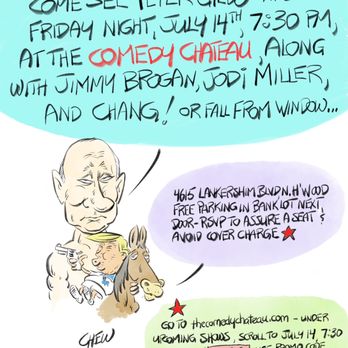 FRIDAY NIGHT, JULY 14TH, 7:30 PM,
AT THE COMEDY CHATEAU, ALONG
WITH JIMMY BROGAN, JODI MILLER,
AND CHANG! OR FALL FROM WINDOW...
4615 LANKERSHIM BLVD N. H'WOOD
FREE PARKING IN BANK LOT NEXT
DOOR - RSVP TO ASSURE A SEAT &
AVOID COVER CHARGE
CHEW
GO TO thecomedychateau.com - UNDER
UPCOMING SHOWS, SCROLL TO JULY 14, 7:30